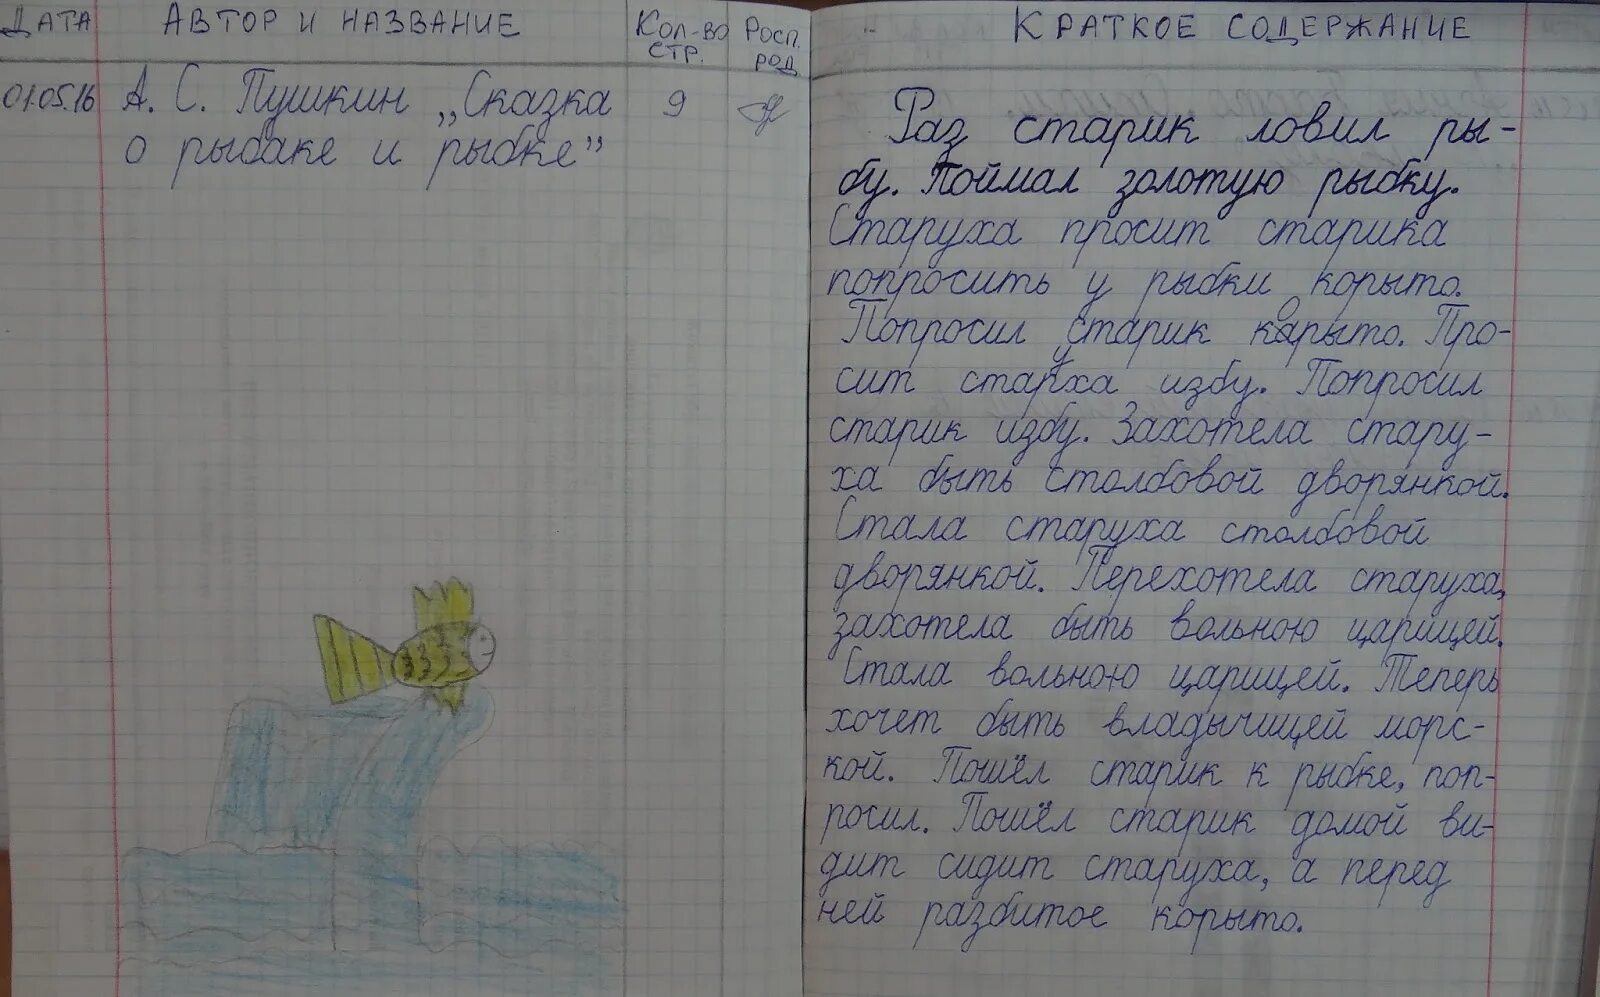 Дата
Автор и название
Кол-во
стр.
Росп.
род
01.05.16
А. С. Пушкин „Сказка
о рыбаке и рыбке”
9
Краткое содержание
Раз старик ловил ры-
бу. Поймал золотую рыбку.
Старуха просит старика
попросить у рыбки корыто.
Попросил старик корыто. Про-
сит старуха избу. Попросил
старик избу. Захотела стару-
ха быть столбовой дворянкой.
Стала старуха столбовой
дворянкой. Перехотела старуха,
захотела быть вольною царицей.
Стала вольною царицей. Теперь
хочет быть владычицей морс-
кой. Пошёл старик к рыбке, поп-
росил. Пошёл старик домой ви-
дит сидит старуха, а перед
ней разбитое корыто.